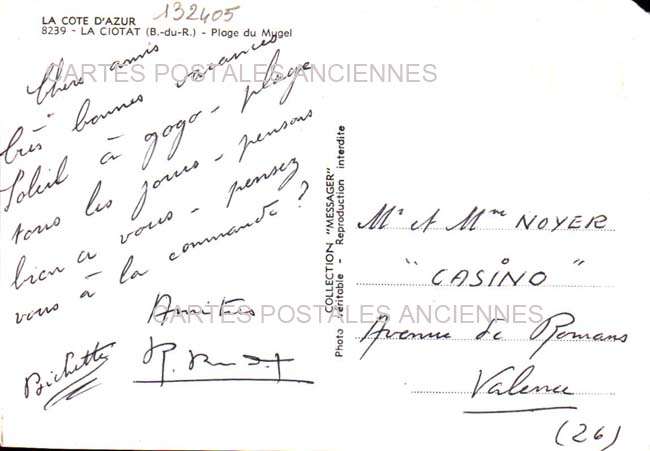 132405
LA COTE D'AZUR
8239 - LA CIOTAT (B.-du-R.) - Plage du Mugel
Chers amis
très bonnes vacances
Soleil à gogo - plage
tous les jours - pensons
bien à vous - pensez
vous à la commande ?
Amitiés
Bichette
R.
CARTES POSTALES ANCIENNES
CARTES POSTALES ANCIENNES
COLLECTION "MESSAGER"
Photo véritable - Reproduction interdite
Mr et Mme NOYER
"CASINO"
Avenue de Romans
Valence
(26)